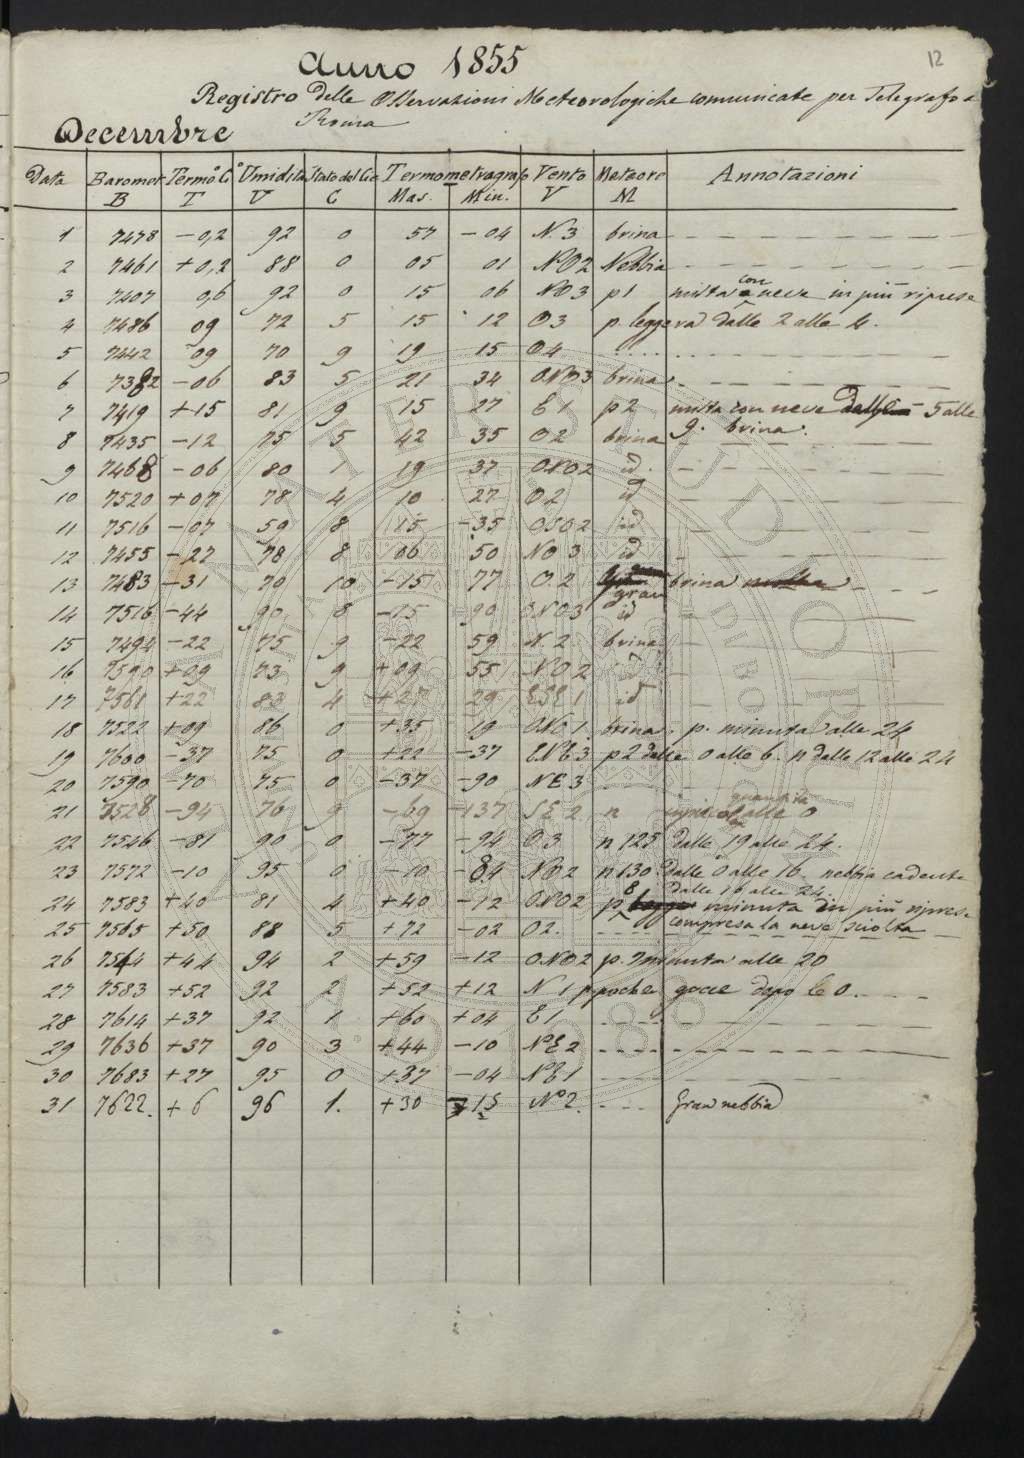 12
Anno 1855
Registro delle Osservazioni Meteorologiche comunicate per Telegrafo a
Roma
Decembre
Data Baromet. Termo C.° Umidità Stato del Cie Termometrografo Vento Meteore Annotazioni
B T U C Mas. Min. V M
1 7478 -0,2 92 0 57 -04 N.3 brina
2 7461 +0,2 88 0 05 01 NO2 Nebbia
3 7407 0,6 92 0 15 06 NO3 p1 mista con neve in più riprese
4 7486 09 72 5 15 12 O3 p. leggera dalle 2 alle 4.
5 7442 09 70 9 19 15 O4
6 7382 -06 83 5 21 34 ONO3 brina
7 7419 +15 81 9 15 27 E1 p2 mista con neve 5 alle
9. brina.
8 7435 -12 75 5 42 35 O2 brina
9 7468 -06 80 1 19 37 ONO2 id.
10 7520 +07 78 4 10 27 O2 id
11 7516 -07 59 8 15 -35 OSO2 id
12 7455 -27 78 8 06 50 NO3 id
13 7483 -31 70 10 -15 77 O.2 gran brina molta
14 7516 -44 90 8 -15 90 ONO3 id
15 7494 -22 75 9 -22 59 N.2 brina
16 7590 +09 73 9 +09 55 NO2 id
17 7561 +22 83 4 +27 29 ESE1 id
18 7522 +09 86 0 +35 19 ONO1 brina. p. minuta alle 24
19 7600 -37 75 0 +22 -37 ENE3 p2 dalle 0 alle 6. n dalle 12 alle 24
20 7590 -70 75 0 -37 -90 NE3
21 7528 -94 76 9 -69 -137 SE2 n quantità alle 0
22 7546 -81 90 0 -77 -94 O3 n125 dalle 19 alle 24.
23 7572 -10 95 0 -10 -84 NO2 n130 dalle 0 alle 16. nebbia cadente
dalle 16 alle 24.
24 7583 +40 81 4 +40 -12 ONO2 p8 minuta in più riprese
compresa la neve sciolta
25 7565 +50 88 5 +72 -02 O2.
26 7544 +44 94 2 +59 -12 ONO2 p. minuta alle 20
27 7583 +52 92 2 +52 +12 N1 p poche gocce dopo le 0
28 7614 +37 92 1 +60 +04 E1
29 7636 +37 90 3 +44 -10 NE2
30 7683 +27 95 0 +37 -04 NE1
31 7622. +6 96 1. +30 15 NO2. Gran nebbia